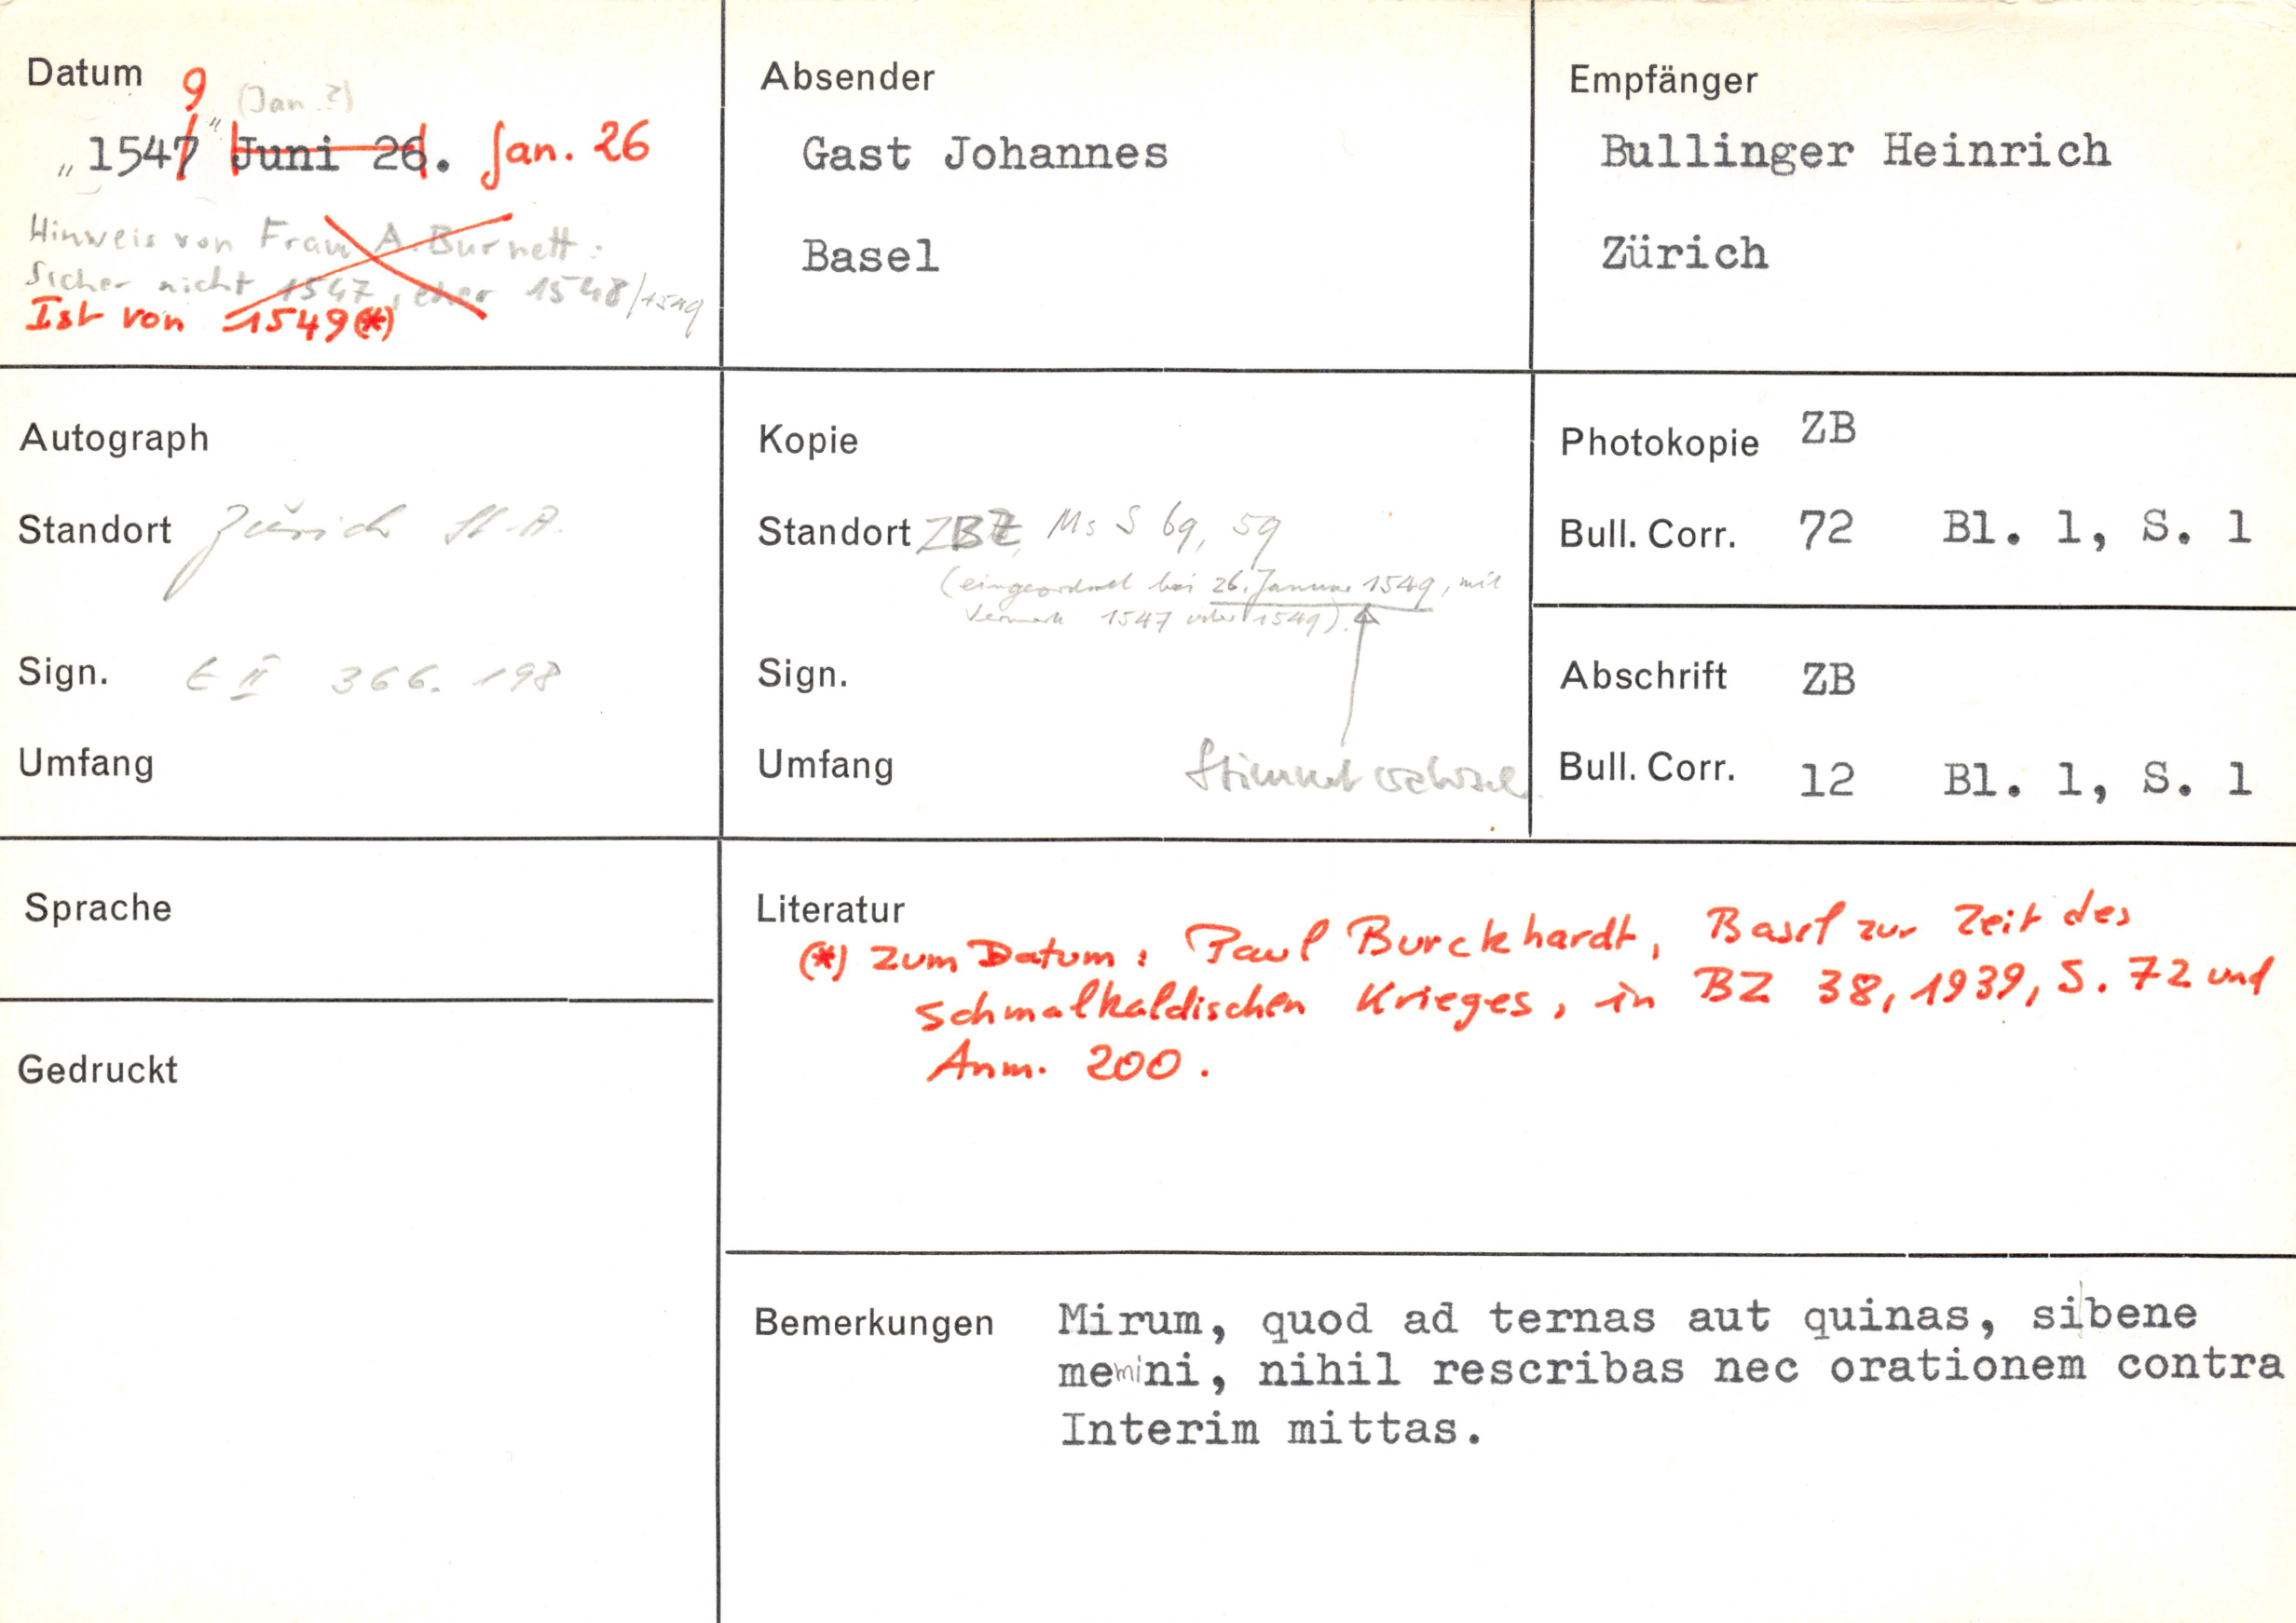 Datum 9 (Jan ?)
"1547" Juni 26. Jan. 26
Hinweis von Frau A. Burnett:
Sicher nicht 1547, eher 1548/1549
Ist von 1549(*)
Absender
Gast Johannes
Basel
Empfänger
Bullinger Heinrich
Zürich
Autograph
Standort Zürich St. A.
Sign. E II 366. 198
Umfang
Kopie
Standort ZBZ, Ms S 69, 59
(eingeordnet bei 26. Januar 1549, mit
Vermerk 1547 oder 1549).
Sign.
Umfang Stimmt
Photokopie ZB
Bull. Corr. 72 Bl. 1, S. 1
Abschrift ZB
Bull. Corr. 12 Bl. 1, S. 1
Sprache
Gedruckt
Literatur
(*) Zum Datum: Paul Burckhardt, Basel zur Zeit des
Schmalkaldischen Krieges, in BZ 38, 1939, S. 72 und
Anm. 200.
Bemerkungen Mirum, quod ad ternas aut quinas, si bene
memini, nihil rescribas nec orationem contra
Interim mittas.